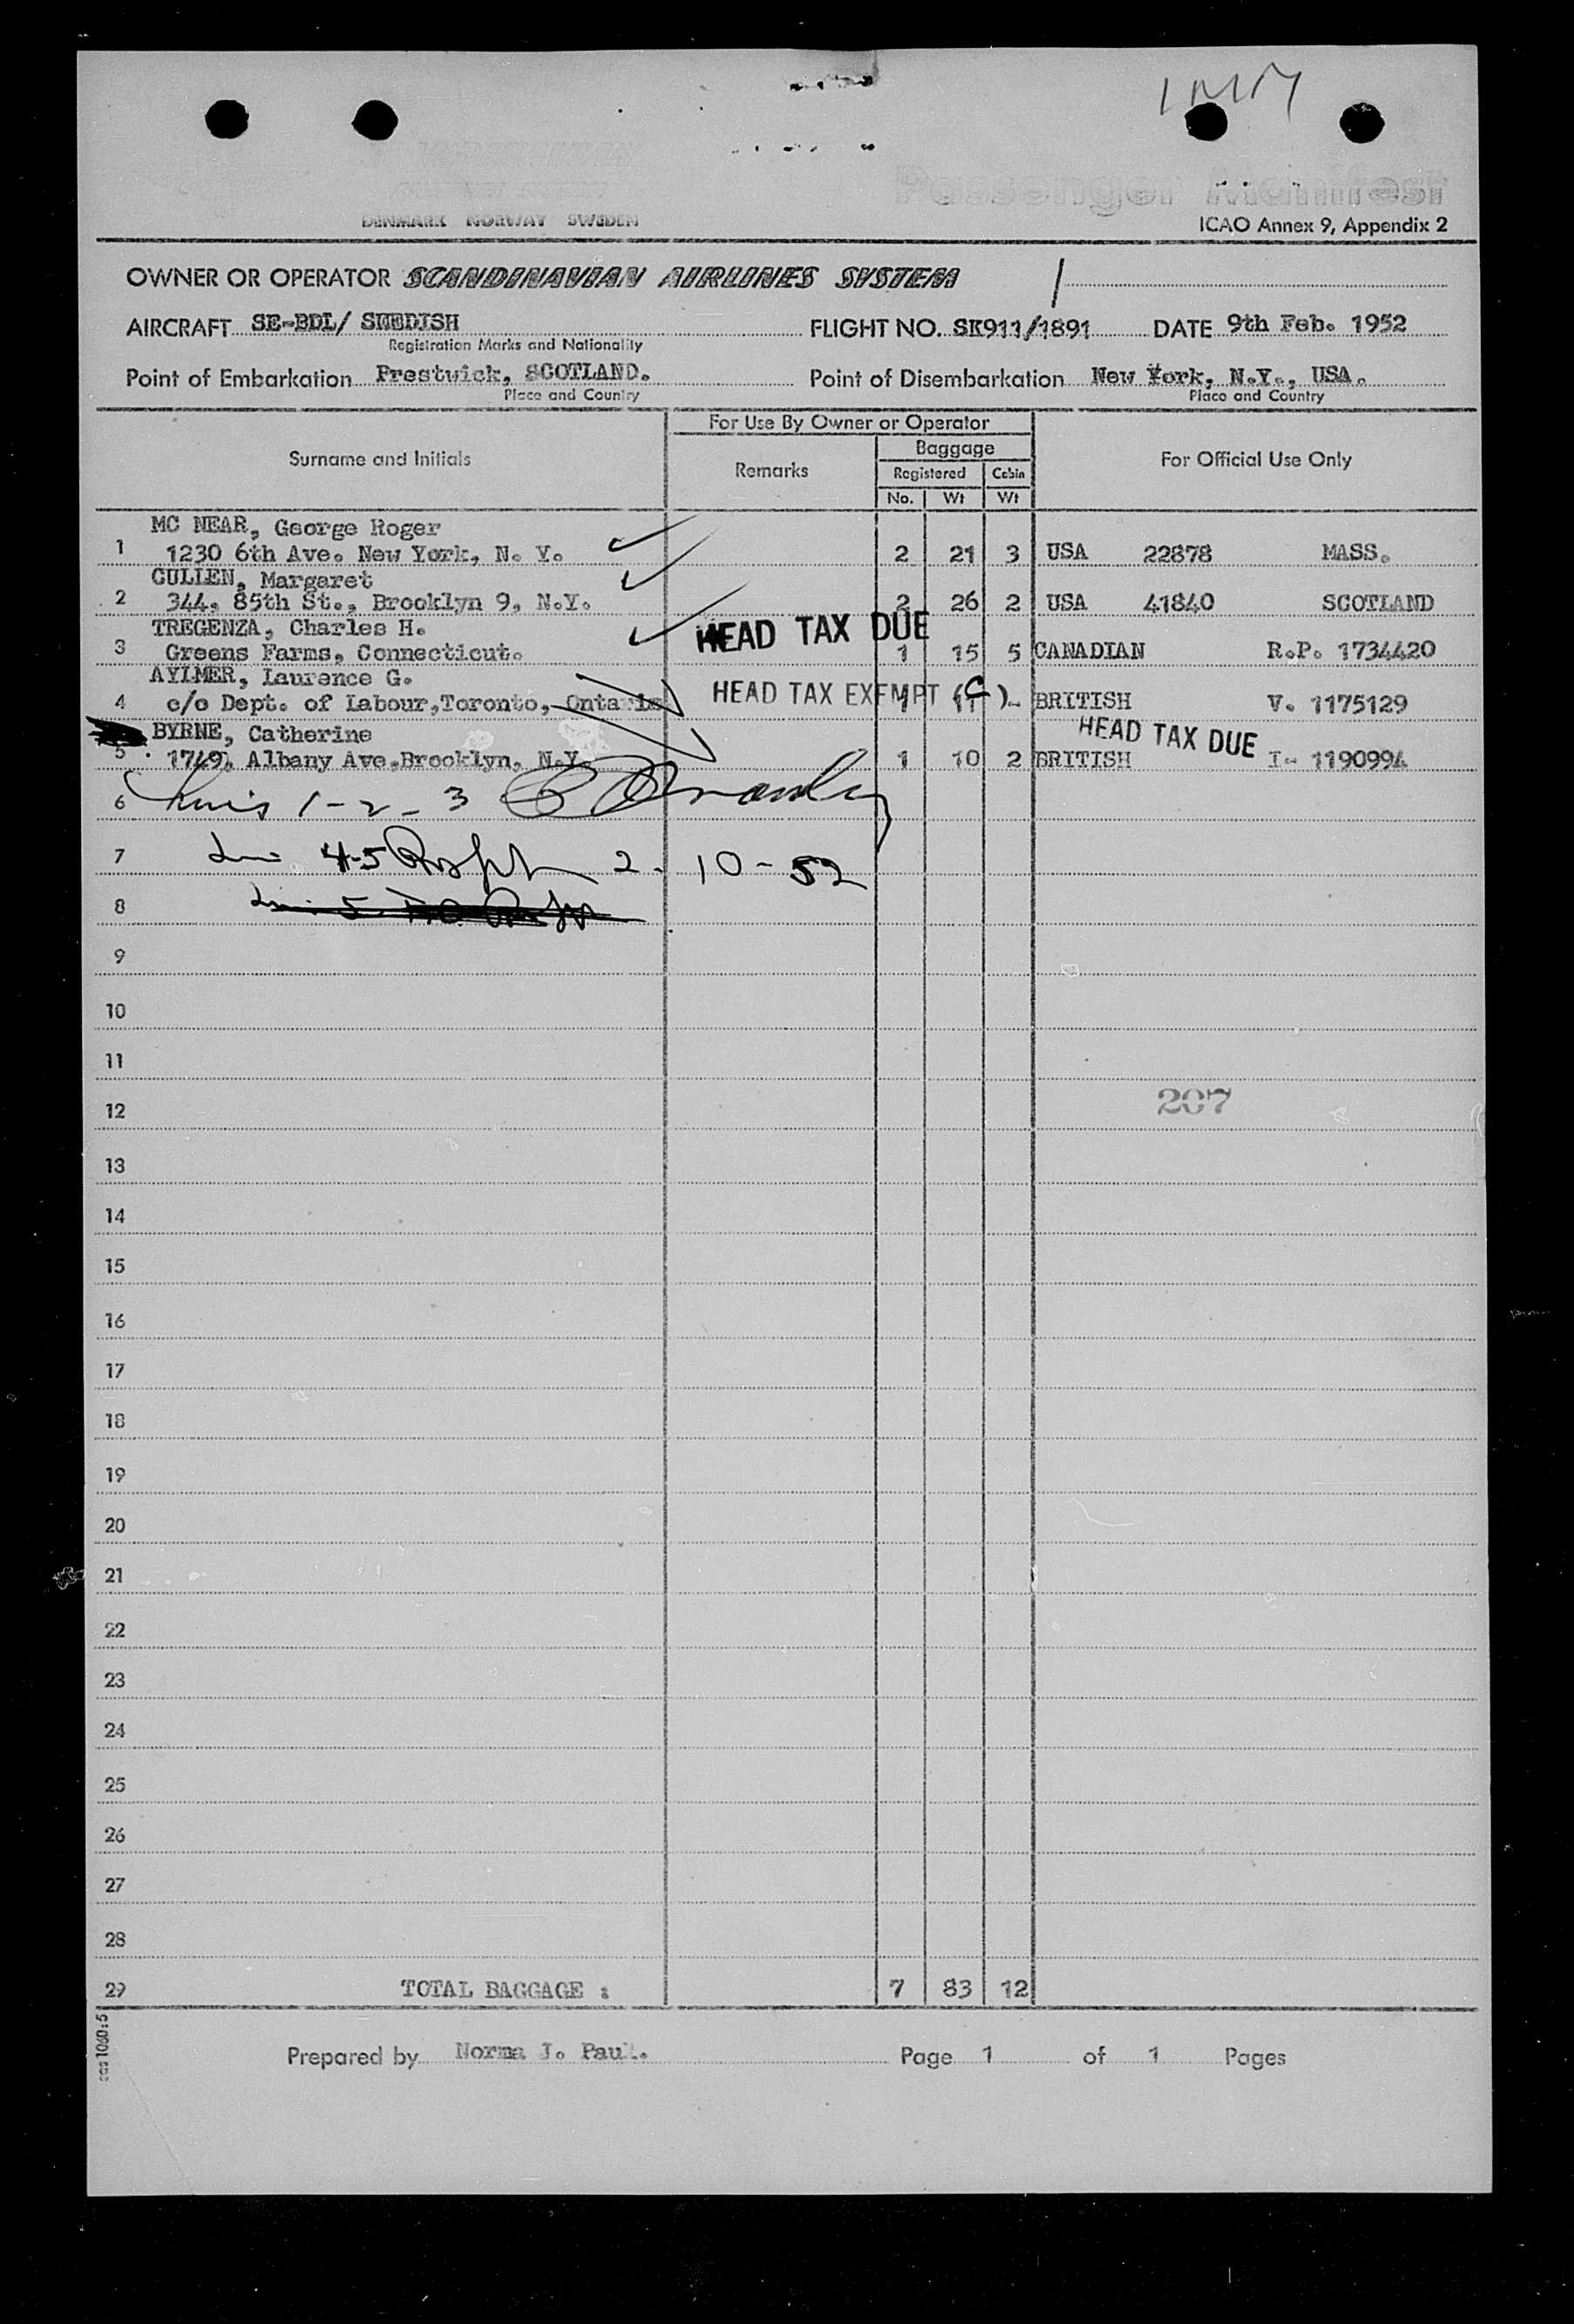 IMM
Passenger Manifest
DENMARK NORWAY SWEDEN
ICAO Annex 9, Appendix 2
OWNER OR OPERATOR SCANDINAVIAN AIRLINES SYSTEM
AIRCRAFT SE-BDL/ SWEDISH FLIGHT NO. SK911/1891 DATE 9th Feb. 1952
Registration Marks and Nationality
Point of Embarkation Prestwick, SCOTLAND. Point of Disembarkation New York, N.Y., USA.
Place and Country Place and Country
For Use By Owner or Operator
Surname and Initials Remarks Baggage For Official Use Only
Registered Cabin
No. Wt Wt
MC NEAR, George Roger
1 1230 6th Ave. New York, N. Y. 2 21 3 USA 22878 MASS.
CULLEN, Margaret
2 344, 85th St., Brooklyn 9, N.Y. 2 26 2 USA 41840 SCOTLAND
TREGENZA, Charles H. HEAD TAX DUE
3 Greens Farms, Connecticut. 1 15 5 CANADIAN R.P. 1734420
AYLMER, Laurence G.
4 c/o Dept. of Labour,Toronto, Ontario HEAD TAX EXEMPT (C) 1 11 - BRITISH V. 1175129
BYRNE, Catherine HEAD TAX DUE
5 1749, Albany Ave.Brooklyn, N.Y. 1 10 2 BRITISH I- 1190994
6 1-2-3
7 4-5 2-10-52
8
9
10
11
12 207
13
14
15
16
17
18
19
20
21
22
23
24
25
26
27
28
29 TOTAL BAGGAGE : 7 83 12
sas 1060:5
Prepared by Norma J. Paul. Page 1 of 1 Pages